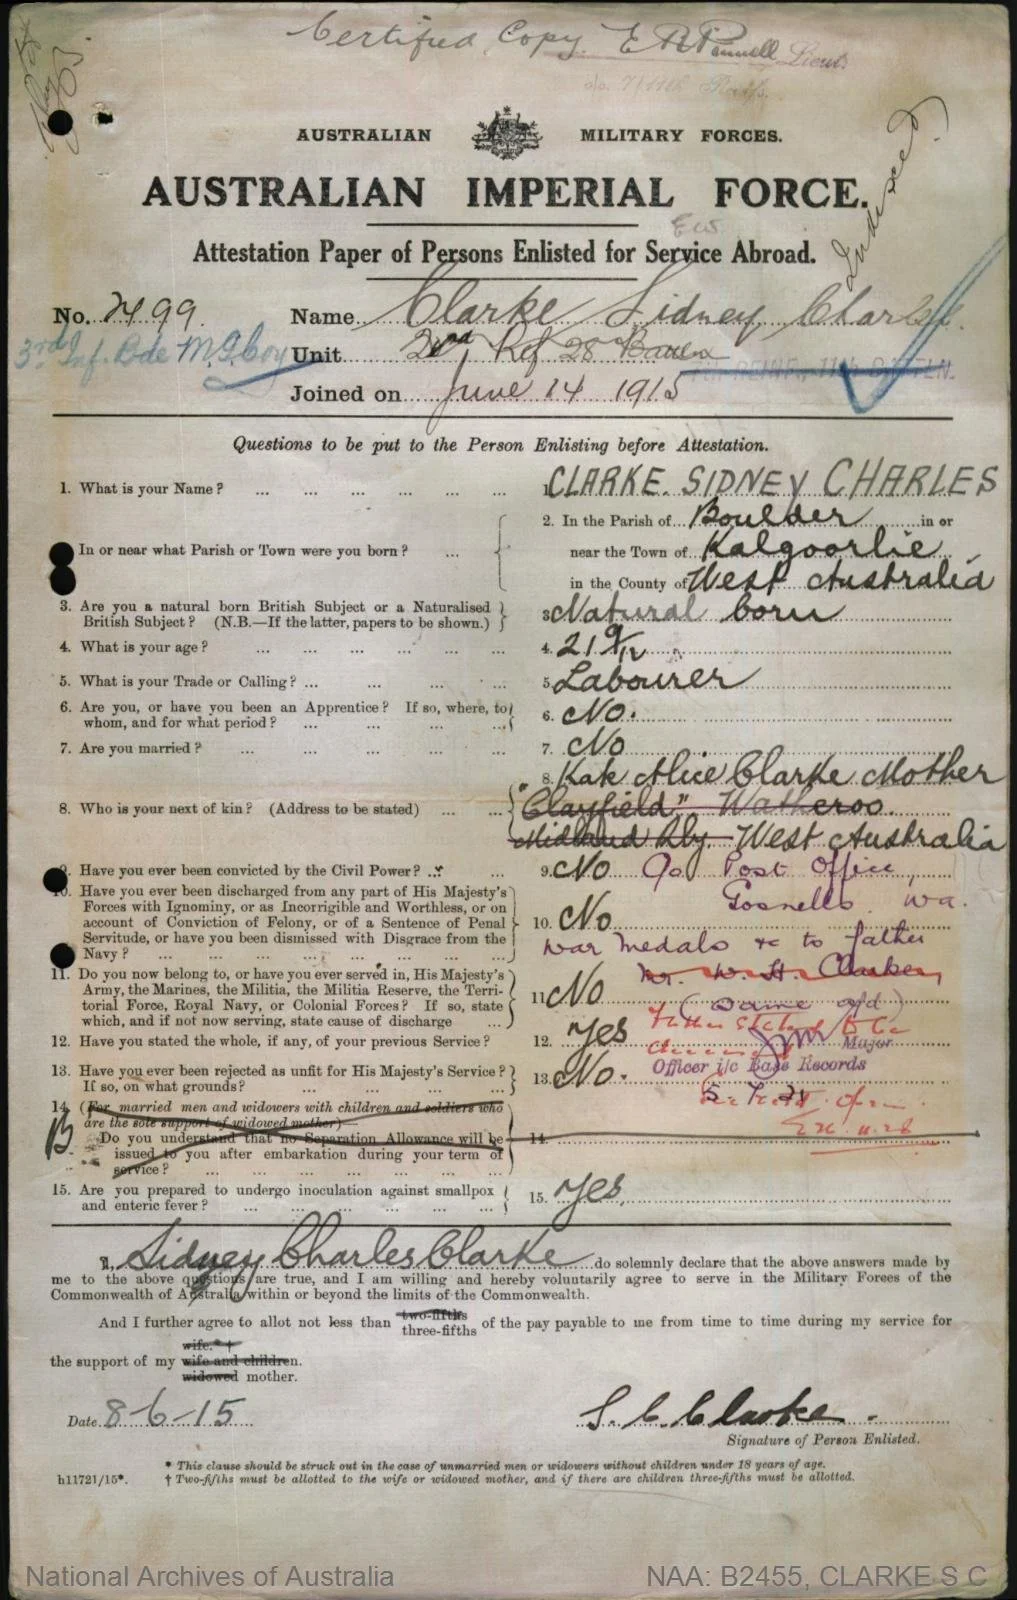 Certified Copy. E R Pennell Lieut.
AUSTRALIAN MILITARY FORCES.
AUSTRALIAN IMPERIAL FORCE.
Indexed
Attestation Paper of Persons Enlisted for Service Abroad.
No. 2499. Name Clarke Sidney Charles.
3rd Inf. Bde M.G. Coy Unit 2nd Ref 28 Batten
Joined on June 14 1915
Questions to be put to the Person Enlisting before Attestation.
1. What is your Name? ... 1. CLARKE. SIDNEY CHARLES
2. In the Parish of Boulder in or
In or near what Parish or Town were you born? ... near the Town of Kalgoorlie,
in the County of West Australia
3. Are you a natural born British Subject or a Naturalised 3 Natural born
British Subject? (N.B.—If the latter, papers to be shown.)
4. What is your age? ... 4. 21 9/12
5. What is your Trade or Calling? ... 5 Labourer
6. Are you, or have you been an Apprentice? If so, where, to 6. No.
whom, and for what period? ...
7. Are you married? ... 7. No
8. Kate Alice Clarke Mother
8. Who is your next of kin? (Address to be stated) ... "Clayfield" Watheroo.
Midland Rly. West Australia
9. Have you ever been convicted by the Civil Power? ... 9. No c/o Post Office,
10. Have you ever been discharged from any part of His Majesty's Gosnells. W.A.
Forces with Ignominy, or as Incorrigible and Worthless, or on
account of Conviction of Felony, or of a Sentence of Penal 10. No
Servitude, or have you been dismissed with Disgrace from the
Navy? ... War medals &c to father
11. Do you now belong to, or have you ever served in, His Majesty's Mr. W. H. Clarke,
Army, the Marines, the Militia, the Militia Reserve, the Terri- 11 No
torial Force, Royal Navy, or Colonial Forces? If so, state (same a/d)
which, and if not now serving, state cause of discharge ...
12. Have you stated the whole, if any, of your previous Service? 12. Yes
Major
13. Have you ever been rejected as unfit for His Majesty's Service? 13. No. Officer i/c Base Records
If so, on what grounds? ...
14. (For married men and widowers with children and soldiers who
are the sole support of widowed mother)—
B Do you understand that no Separation Allowance will be 14.
issued to you after embarkation during your term of
service? ...
15. Are you prepared to undergo inoculation against smallpox 15. Yes,
and enteric fever? ...
I, Sidney Charles Clarke do solemnly declare that the above answers made by
me to the above questions are true, and I am willing and hereby voluntarily agree to serve in the Military Forces of the
Commonwealth of Australia within or beyond the limits of the Commonwealth.
And I further agree to allot not less than two-fifths three-fifths of the pay payable to me from time to time during my service for
wife.* †
the support of my wife and children.
widowed mother.
Date 8-6-15 S. C. Clarke.
Signature of Person Enlisted.
* This clause should be struck out in the case of unmarried men or widowers without children under 18 years of age.
h11721/15*. † Two-fifths must be allotted to the wife or widowed mother, and if there are children three-fifths must be allotted.
National Archives of Australia NAA: B2455, CLARKE S C